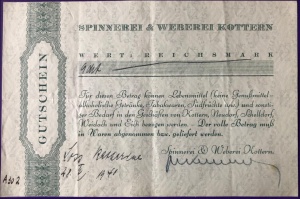 SPINNEREI & WEBEREI KOTTERN
WERT: REICHSMARK
GUTSCHEIN
Für diesen Betrag können Lebensmittel (keine Genußmittel-
alkoholische Getränke, Tabakwaren, Südfrüchte usw.) und sonsti-
ger Bedarf in den Geschäften von Kottern, Neudorf, Schelldorf,
Weidach und Eich bezogen werden - Der volle Betrag muß
in Waren abgenommen bzw. geliefert werden.
Spinnerei & Weberei Kottern.